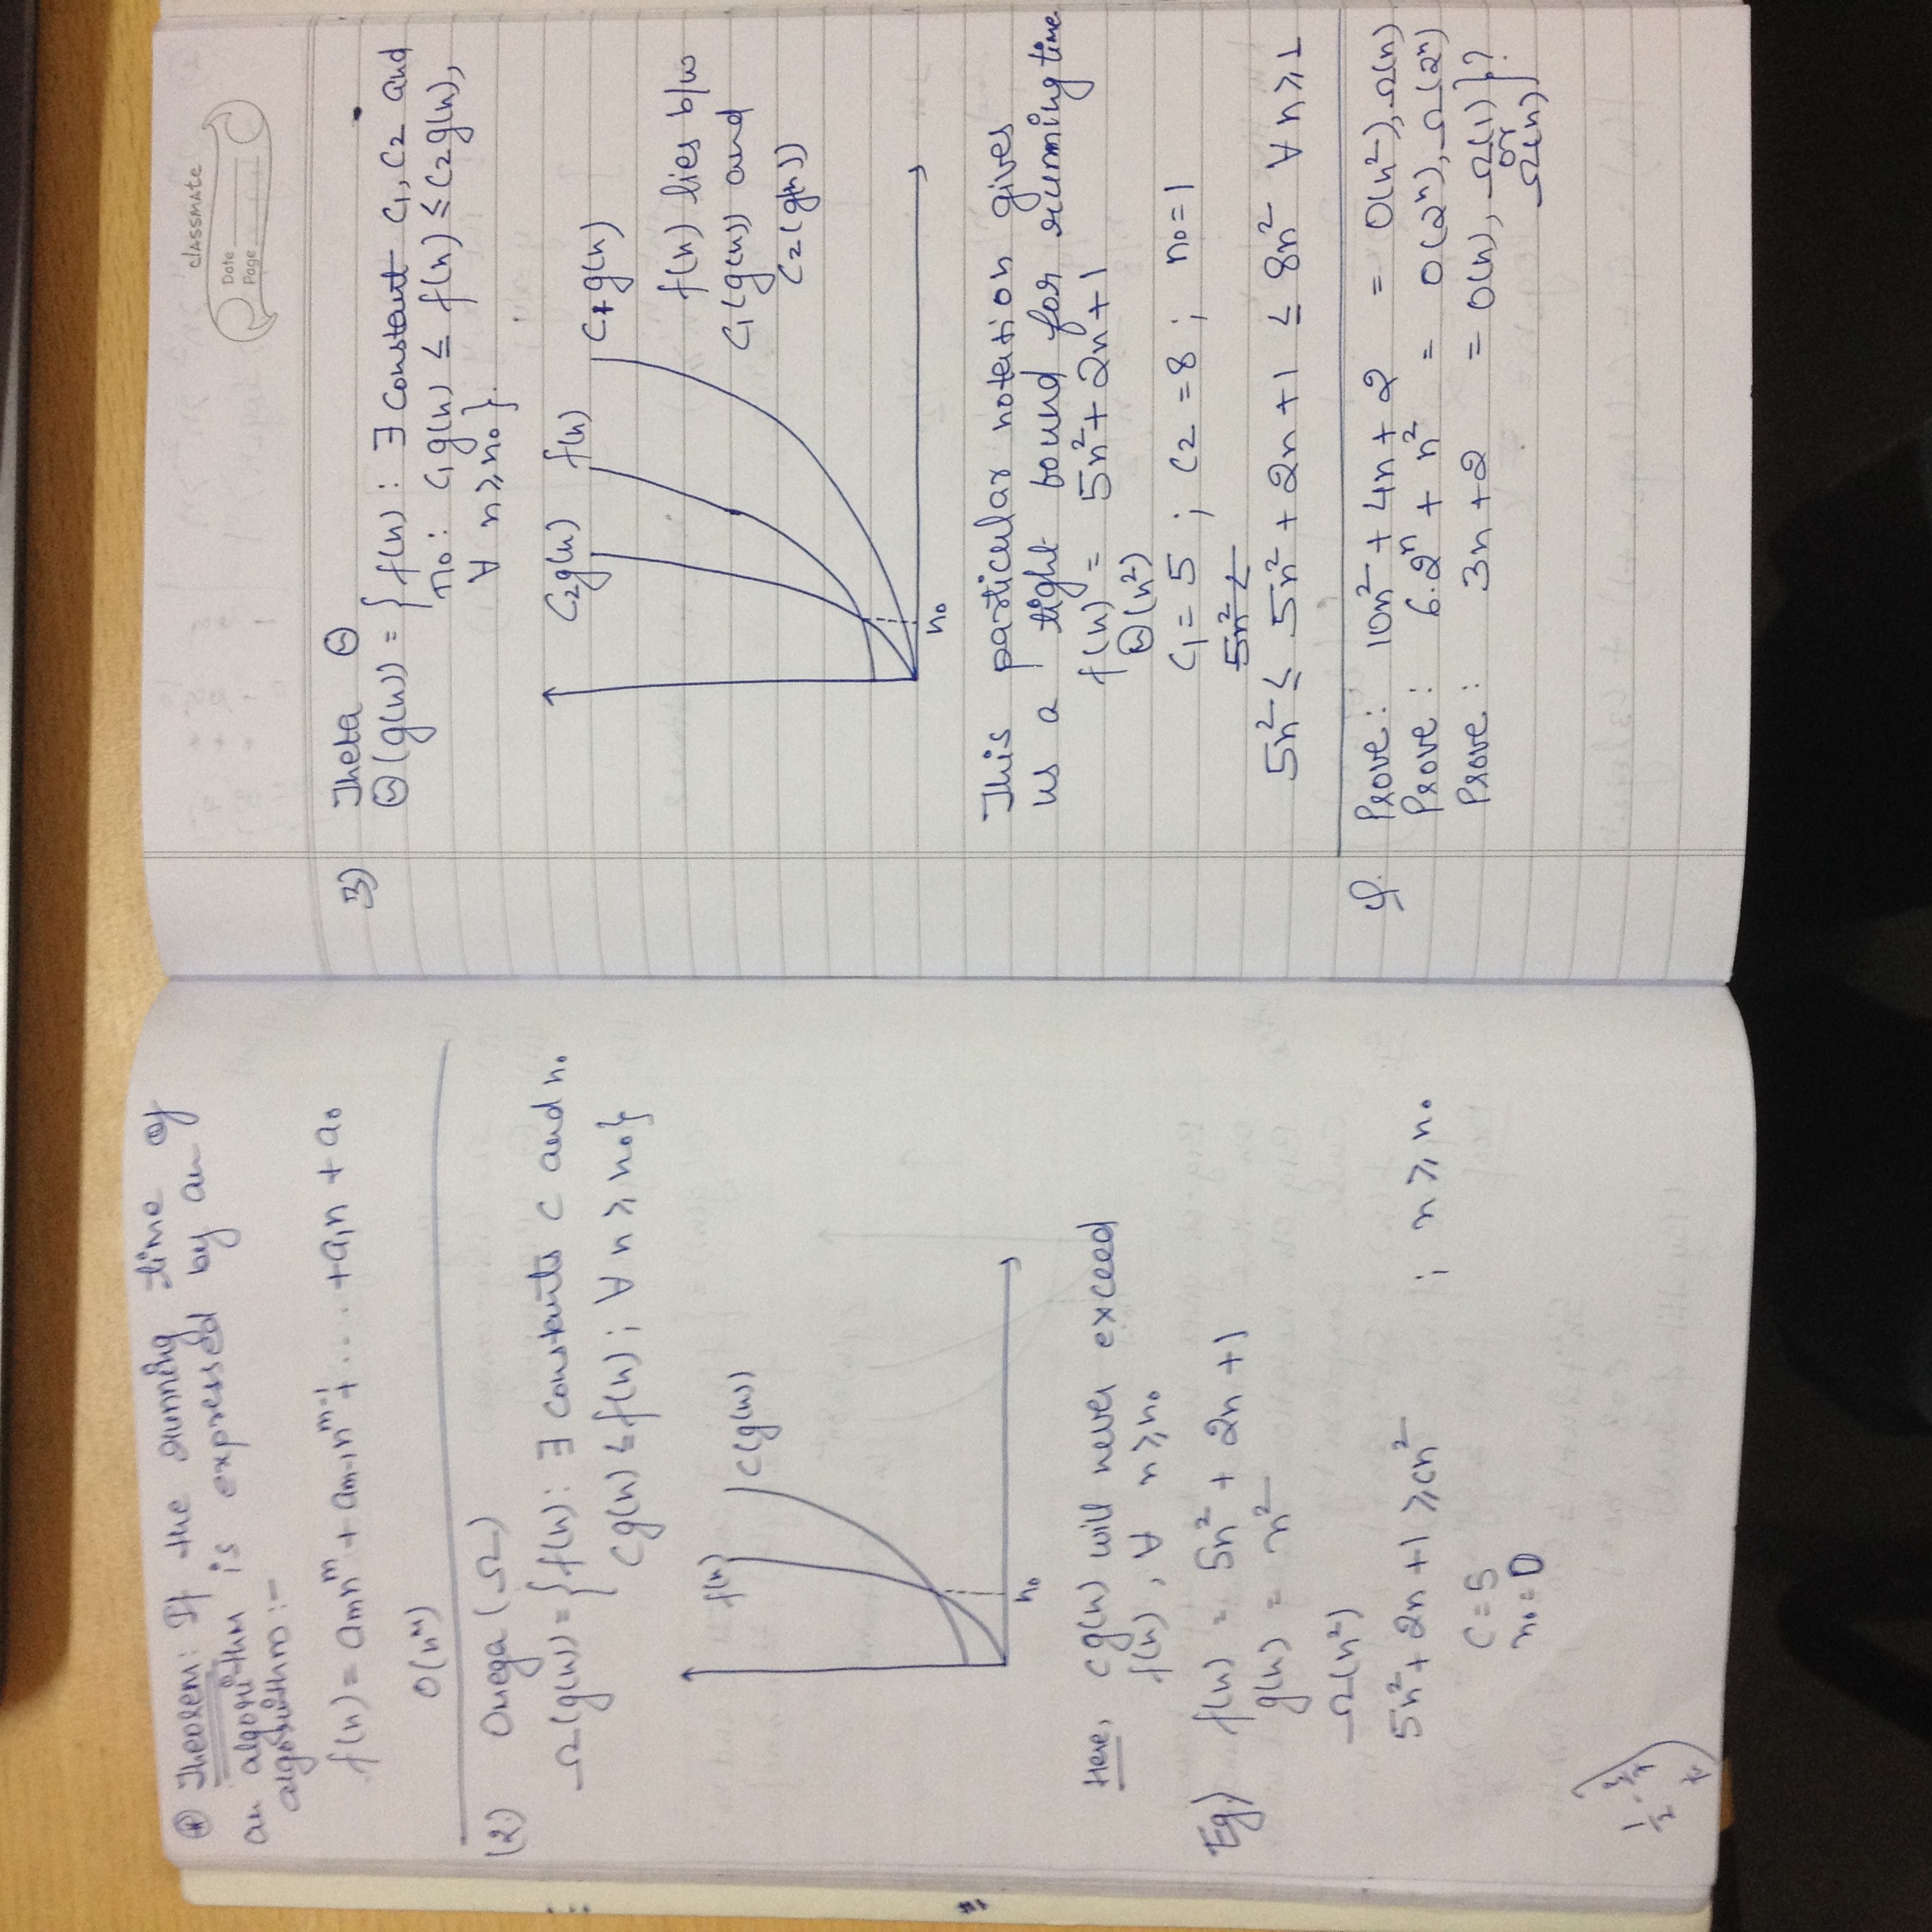 * Theorem: If the running time of
an algorithm is expressed by an
algorithm :-
f(n) = amn^m + am-1n^m-1 + .... + a1n + a0
O(n^m)
(2.) Omega (Ω)
Ω(g(n)) = { f(n): ∃ constants c and n0
cg(n) ≤ f(n) ; ∀ n ≥ n0}
f(n)
C(g(n))
n0
Here, cg(n) will never exceed
f(n), ∀ n ≥ n0
Eg.) f(n) = 5n² + 2n + 1
g(n) = n²
Ω(n²)
5n² + 2n + 1 ≥ cn² ; n ≥ n0
c = 5
n0 = 0
classmate
Date
Page
3) Theta Θ
Θ(g(n)) = { f(n) : ∃ constant c1, c2 and
n0 : c1g(n) ≤ f(n) ≤ c2g(n),
∀ n ≥ n0 }.
C2g(n)
f(n)
C1g(n)
n0
f(n) lies b/w
C1(g(n)) and
C2(g(n))
This particular notation gives
us a tight bound for running time
f(n) = 5n² + 2n + 1
Θ(n²)
C1 = 5 ; C2 = 8 ; n0 = 1
5n² ≤
5n² ≤ 5n² + 2n + 1 ≤ 8n² ∀ n ≥ 1
Q. Prove: 10n² + 4n + 2 = O(n²), Ω(n)
Prove : 6.2^n + n² = O(2^n), Ω(2^n)
Prove : 3n + 2 = O(n), Ω(1) } ?
or
Ω(n)